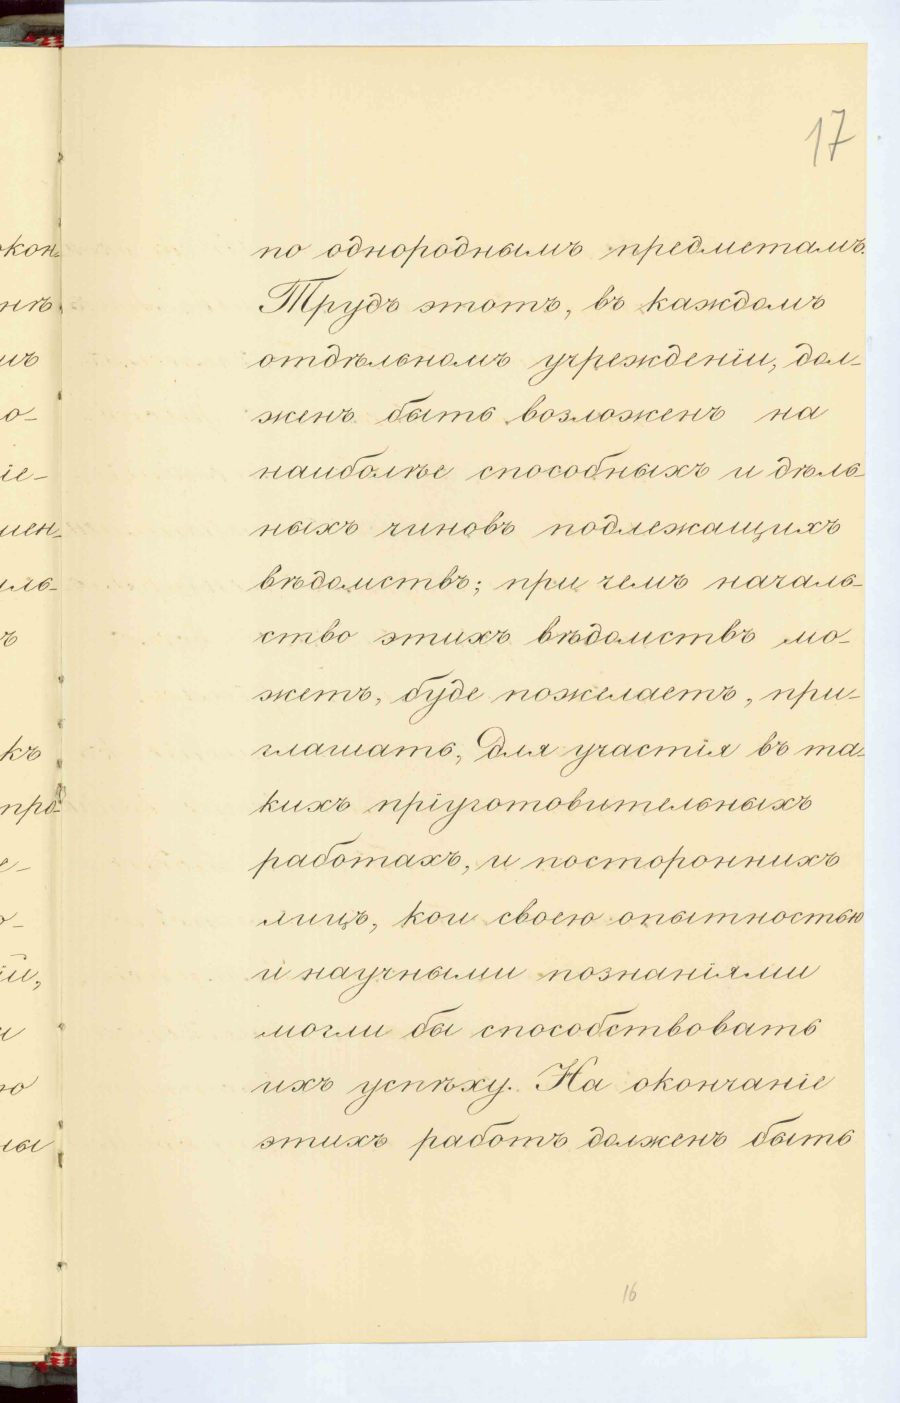 17
по однороднымъ предметамъ.
Трудъ этотъ, въ каждомъ
отдѣльномъ учрежденіи, дол-
женъ быть возложенъ на
наиболѣе способныхъ и дѣль-
ныхъ чиновъ подлежащихъ
вѣдомствъ; при чемъ началь-
ство этихъ вѣдомствъ мо-
жетъ, буде пожелаетъ, при-
глашать, для участія въ та-
кихъ пріуготовительныхъ
работахъ, и постороннихъ
лицъ, кои своею опытностью
и научными познаніями
могли бы способствовать
ихъ успѣху. На окончаніе
этихъ работъ долженъ быть
16